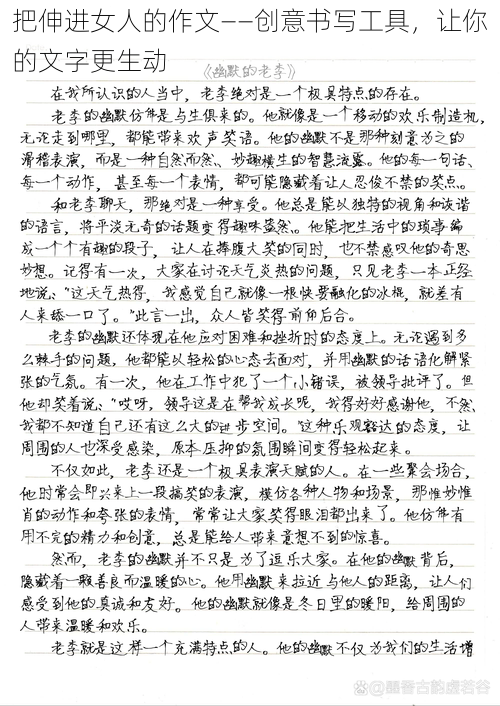 把伸进女人的作文——创意书写工具，让你
的文字更生动
《幽默的老李》
在我所认识的人当中，老李绝对是一个极具特点的存在。
老李的幽默仿佛是与生俱来的。他就像是一个移动的欢乐制造机，
无论走到哪里，都能带来欢声笑语。他的幽默不是那种刻意为之的
滑稽表演，而是一种自然而然、妙趣横生的智慧流露。他的每一句话、
每一个动作，甚至每一个表情，都可能隐藏着让人忍俊不禁的笑点。
和老李聊天，那绝对是一种享受。他总是能以独特的视角和诙谐
的语言，将平淡无奇的话题变得趣味盎然。他能把生活中的琐事编
成一个个有趣的段子，让人在捧腹大笑的同时，也不禁感叹他的奇思
妙想。记得有一次，大家在讨论天气炎热的问题，只见老李一本正经
地说：“这天气热得，我感觉自己就像一根快要融化的冰棍，就差有
人来舔一口了。”此言一出，众人皆笑得前俯后合。
老李的幽默还体现在他应对困难和挫折时的态度上。无论遇到多
么棘手的问题，他都能以轻松的心态去面对，并用幽默的话语化解紧
张的气氛。有一次，他在工作中犯了一个小错误，被领导批评了。但
他却笑着说：“哎呀，领导这是在帮我成长呢，我得好好感谢他，不然
我都不知道自己还有这么大的进步空间。”这种乐观豁达的态度，让
周围的人也深受感染，原本压抑的氛围瞬间变得轻松起来。
不仅如此，老李还是一个极具表演天赋的人。在一些聚会场合，
他时常会即兴来上一段搞笑的表演，模仿各种人物和场景，那惟妙惟
肖的动作和夸张的表情，常常让大家笑得眼泪都出来了。他仿佛有
用不完的精力和创意，总是能给人带来意想不到的惊喜。
然而，老李的幽默并不只是为了逗乐大家。在他的幽默背后，
隐藏着一颗善良而温暖的心。他用幽默来拉近与他人的距离，让人们
感受到他的真诚和友好。他的幽默就像是冬日里的暖阳，给周围的
人带来温暖和欢乐。
老李就是这样一个充满特点的人。他的幽默不仅为我们的生活增